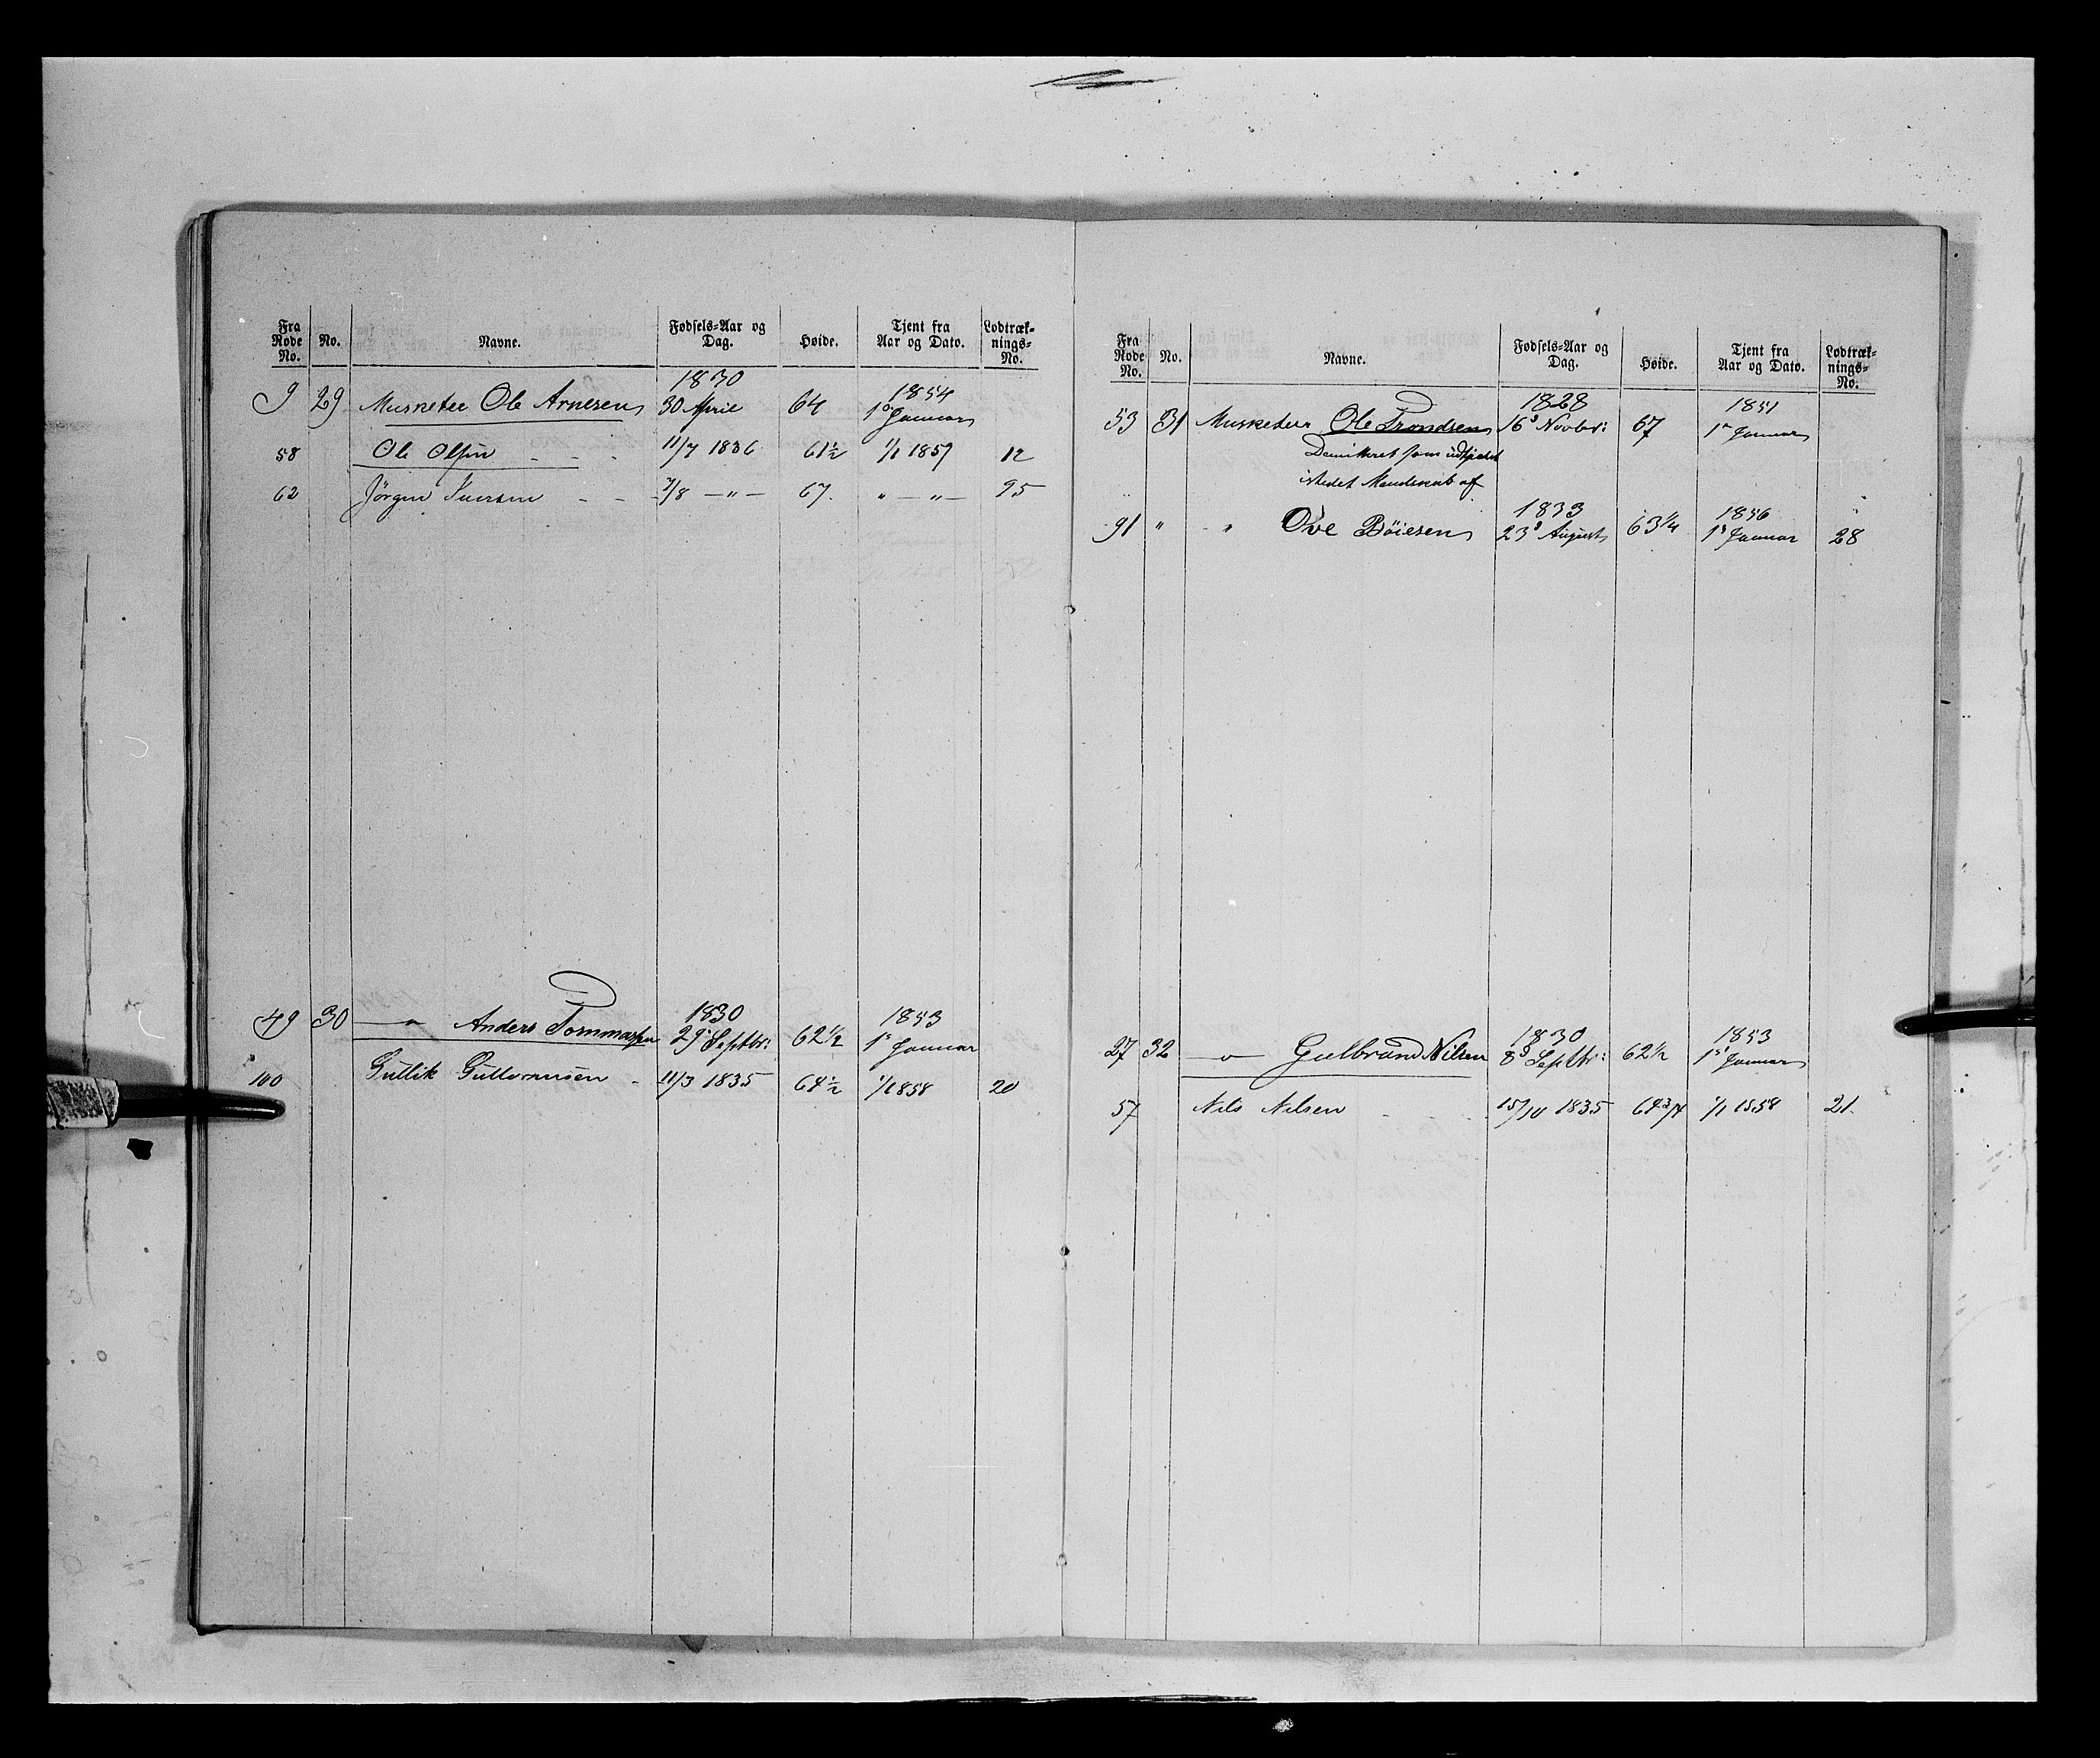 Fra Rode No. No. Navne. Fødsels-Aar og Dag. Høide. Tjent fra Aar og Dato. Lodtræk-nings-No.
1830 1854
9 29 Musketeer Ole Arnesen 30 April 64 1 Januar
58 Ole Olsen - - - 11/7 1836 61½ 1/1 1857 12
62 Jörgen Iversen - - 7/8 — " — 67. " — " — 95
1830 1853
49 30 — " Anders Tommasen 29 Septbr: 62 ½ 1 Januar
100 Gullik - 11/3 1835 64½ 1/1 1858 20
Fra Rode No. No. Navne. Fødsels-Aar og Dag. Høide. Tjent fra Aar og Dato. Lodtræk-nings-No.
1828 1851
53 31 Musketeer Ole Trondsen 16 Novbr: 67 1 Januar
Demitteret som udtjent
istedet Mandskab af
1833 1856
91 " " Ove Böiesen 23 August 63 ¼ 1 Januar 28
1830 1853
27 32 — " Gulbrand Nilsen 8 Septbr: 62 ½ 1 Januar
57 Nils Nilsen - - - 15/10 1835 64 3/4 1/1 1858 21.